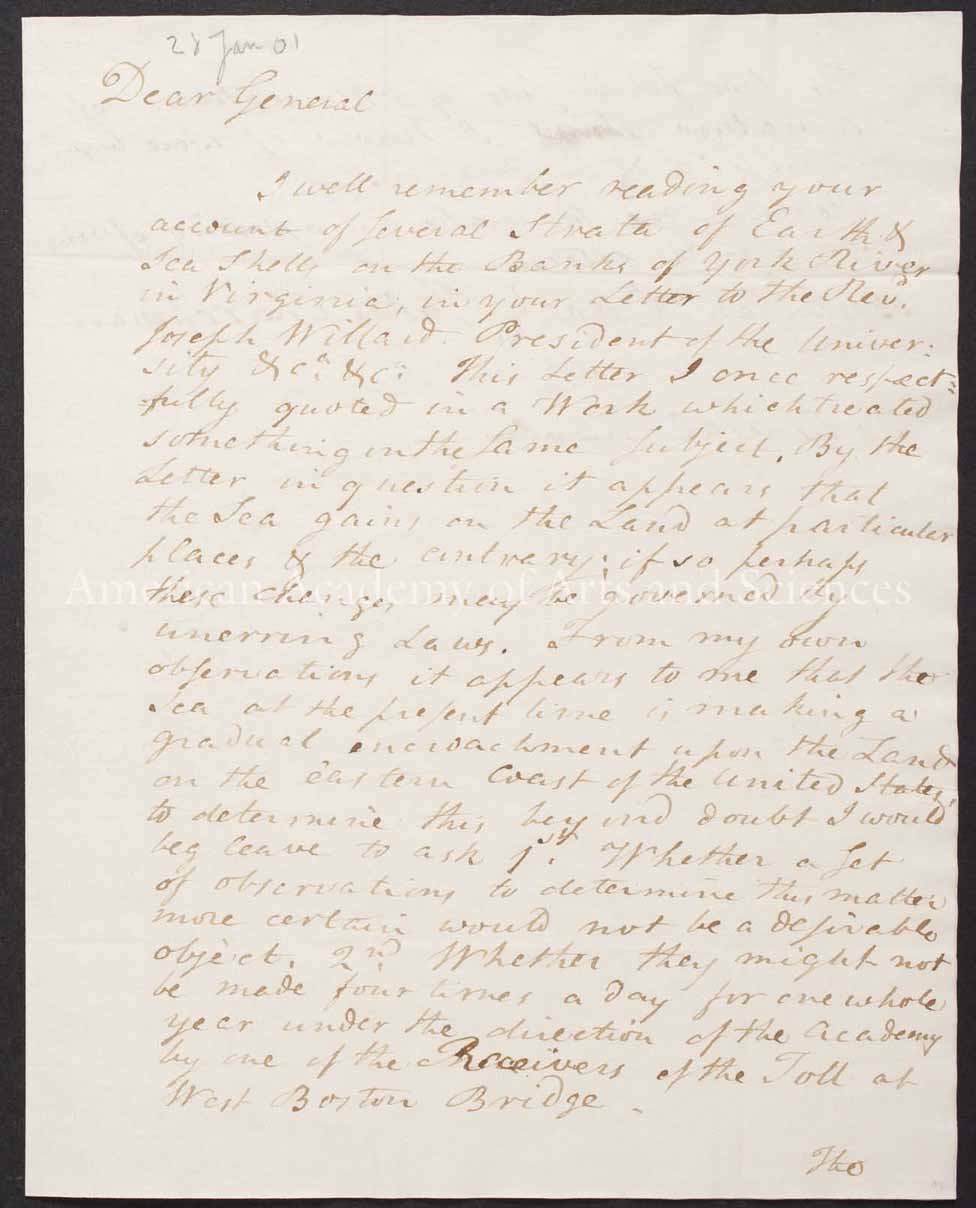 28 Jan 01
Dear General
I well remember reading your
account of several Strata of Earth &
Sea Shells on the Banks of York River
in Virginia, in your Letter to the Revd.
Joseph Willard. President of the Univer:
sity &ca. &ca. This Letter I once respect=
fully quoted in a Work which treated
something on the same subject. By the
Letter in question it appears that
the Sea gains on the Land at particular
places & the contrary; if so perhaps
American Academy of Arts and Sciences
these changes may be governed by
unerring Laws. From my own
observations it appears to me that the
Sea at the present time is making a
gradual encroachment upon the Land
on the eastern Coast of the United States,
to determine this beyond doubt I would
beg leave to ask 1st. Whether a set
of observations to determine this matter
more certain would not be a desirable
object. 2nd. Whether they might not
be made four times a day for one whole
year under the direction of the Academy
by one of the Receivers of the Toll at
West Boston Bridge.
The